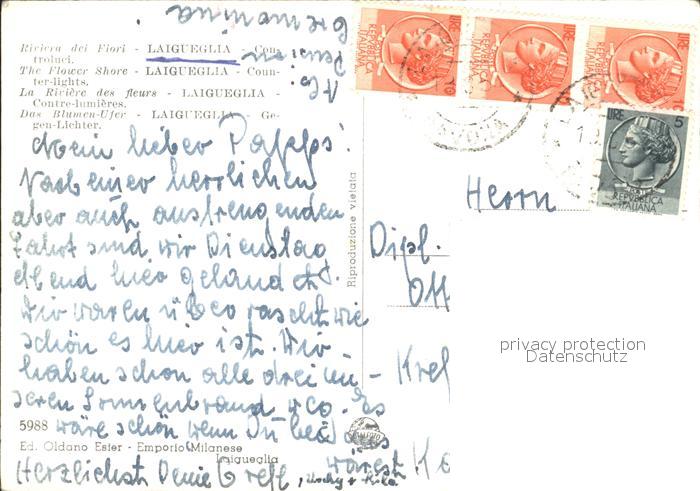 Cremonina
Pension
Riviera dei Fiori - LAIGUEGLIA - Con-
troluci.
The Flower Shore - LAIGUEGLIA - Coun-
ter-lights.
La Rivière des fleurs - LAIGUEGLIA -
Contre-lumières.
Das Blumen-Ufer - LAIGUEGLIA - Ge-
gen-Lichter.
Mein lieber Papps!
Nach einer herrlichen
aber auch anstrengenden
Fahrt sind wir Dienstag
Abend hier gelandet.
Wir waren überrascht wie
schön es hier ist. Wir
haben schon alle drei un-
seren Sonnenbrand weg. Es
5988 wäre schön wenn Du bei uns
wärest
Ed. Oldano Ester - Emporio Milanese
Laigueglia
Herzlichst Deine Gretl,
Riproduzione vietata
LIRE 10
REPUBBLICA
ITALIANA
LIRE 10
REPUBBLICA
ITALIANA
LIRE 10
REPUBBLICA
ITALIANA
LIRE 5
REPUBBLICA
ITALIANA
Herrn
Dipl.
Ott
Kref
privacy protection
Datenschutz